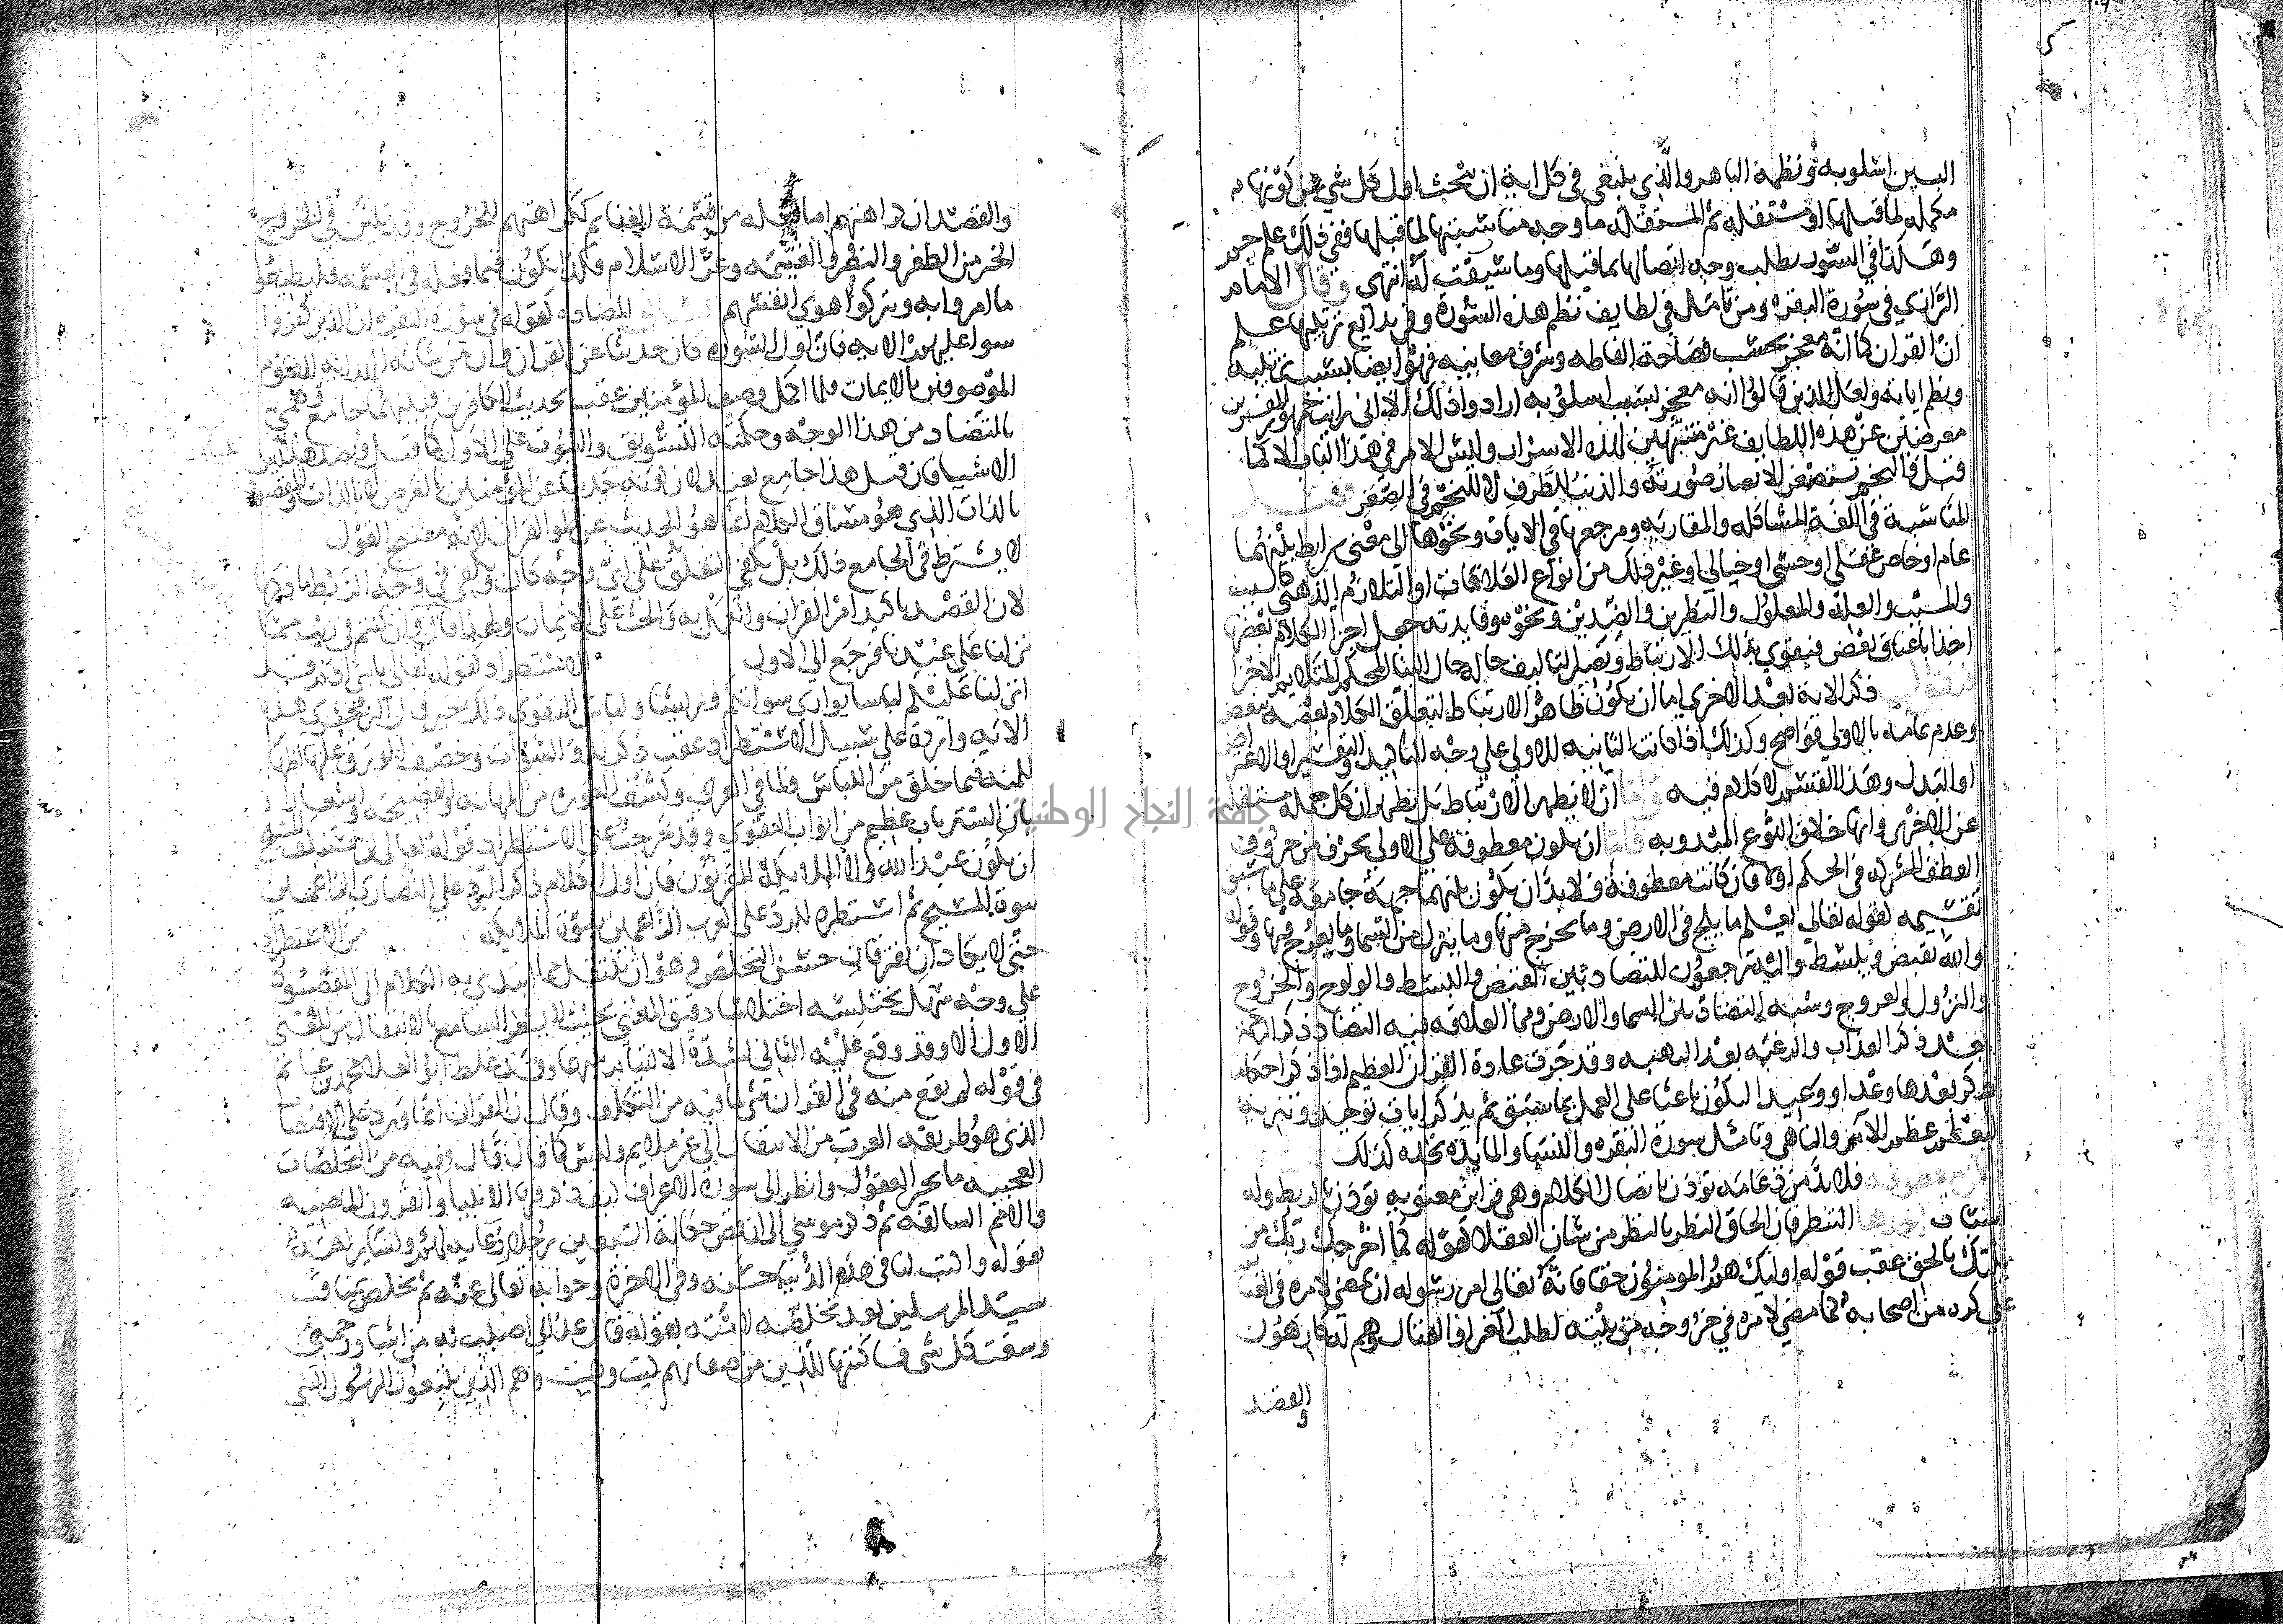 البين اسلوبه ونظمه الباهر والذي ينبغي في كل اية ان يبحث اول كل شي عن كونها
مكمله لما قبلها او مستقله ثم المستقله ما وجه مناسبتها لما قبلها ففي ذلك علم جم
وهكذا في السور يطلب وجه اتصالها بما قبلها وما سيقت له انتهى وقال الامام
الرازي في سورة البقره ومن تامل في لطايف نظم هذه السورة وفي بدايع ترتيبها علم
ان القران كما انه معجز بحسب فصاحة الفاظه وشرف معانيه فهو ايضا بسبب ترتيبه
ونظم اياته ولعل الذين قالوا انه معجز بسبب اسلوبه ارادوا ذلك الا اني رايت جمهور المفسرين
معرضين عن هذه اللطايف غير متنبهين لهذه الاسرار وليس الامر في هذا الباب الا كما
قيل والنجم تستصغر الابصار صورته والذنب للطرف لا للنجم في الصغر
المناسبة في اللغة المشاكله والمقاربه ومرجعها في الايات ونحوها الى معنى رابط بينهما
عام او خاص عقلي او حسي او خيالي او غير ذلك من انواع العلاقات او التلازم الذهني كالسبب
والمسبب والعله والمعلول والنظرين والضدين ونحوه وفايدته جعل اجزا الكلام بعضها
اخذا باعناق بعض فيقوي بذلك الارتباط ويصير التاليف حاله حال البنا المحكم المتلايم الاجزا
ذكر الاية بعد الاخرى اما ان يكون ظاهر الارتباط لتعلق الكلام بعضه ببعض
وعدم تمامه بالاولى فواضح وكذلك اذا كانت الثانيه للاولى على وجه التاكيد او التفسير او الاعتراض
او البدل وهذا القسم لا كلام فيه واما ان لا يظهر الارتباط بل يظهر ان كل جملة مستقله
عن الاخرى وانها خلاف النوع المبدو به فاما ان يكون معطوفة على الاولى بحرف من حروف
العطف المشركه في الحكم اولا فان كانت معطوفة فلا بد ان يكون بينهما جهة جامعة على ما سبق
تقسيمه كقوله تعالى يعلم ما يلج في الارض وما يخرج منها وما ينزل من السما وما يعرج فيها وقوله
والله يقبض ويبسط واليه ترجعون للتضاد بين القبض والبسط والولوج والخروج
والنزول والعروج وشبه التضاد بين السما والارض ومما العلاقه فيه التضاد ذكر الرحمة
بعد ذكر العذاب والرغبه بعد الرهبه وقد جرت عادة القران العظيم اذا ذكر احكاما
ذكر بعدها وعدا ووعيدا ليكون باعثا على العمل بما سبق ثم يذكر ايات توحيد وتنزيه
ليعلم عظم الامر والناهي وتامل سورة البقره والنسا والمايده تجده كذلك
معطوفه فلا بد من دعامه توذن باتصال الكلام وهي قراين معنويه توذن بالربط وله
اسباب احدها التنظير فان الحاق النظير بالنظير من شان العقلا كقوله كما اخرجك ربك من
بيتك بالحق عقب قوله اوليك هم المومنون حقا فانه تعالى امر رسوله ان يمضي لامره في الغنايم
على كره من اصحابه كما مضى لامره في خروجه من بيته لطلب العير او للقتال وهم له كارهون
القصد
والقصد ان كراهتهم لما فعله من قسمة الغنايم ككراهتهم للخروج وقد تبين في الخروج
الخير من الظفر والنصر والغنيمه وعز الاسلام فكذا يكون فيما فعله في القسمه فليطيعوا
ما امروا به ويتركوا هوى انفسهم المضاده كقوله في سورة البقره ان الذين كفروا
سوا عليهم الايه فان اول السورة كان حديثا عن القران وان من شانه الهدايه للقوم
الموصوفين بالايمان فلما اكمل وصف المؤمنين عقب بحديث الكافرين فبينهما جامع وهمي
بالتضاد من هذا الوجه وحكمته التشويق والثبوت على الاول كما قيل وبضدها تتبين
الاشيا فان قيل هذا جامع بعيد لان كونه حديثا عن المؤمنين بالعرض لا بالذات والمقصود
بالذات الذي هو مساق الكلام انما هو الحديث عن القران لانه مفتتح القول
لا يشترط في الجامع ذلك بل يكفي التعلق على اي وجه كان ويكفي في وجه الربط ما ذكرنا
لان القصد تاكيد امر القران والعمل به والحث على الايمان ولهذا قال وان كنتم في ريب مما
نزلنا على عبدنا فرجع الى الاول الاستطراد كقوله تعالى يا بني ادم قد
انزلنا عليكم لباسا يواري سواتكم وريشا ولباس التقوى ذلك خير قال الزمخشري هذه
الايه واردة على سبيل الاستطراد عقب ذكر بدو السوات وخصف الورق عليها اظهارا
للمنه فيما خلق من اللباس ولما في العري وكشف العورة من المهانه والفضيحه واشعارا
بان الستر باب عظيم من ابواب التقوى وقد خرجت على الاستطراد قوله تعالى لن يستنكف المسيح
ان يكون عبدا لله ولا الملايكة المقربون فان اول الكلام ذكر الرد على النصارى الزاعمين
بنوة المسيح ثم استطرد للرد على العرب الزاعمين بنوة الملايكه من الاستطراد
حتى لا يكاد ان يفترقان حسن التخلص وهو ان ينتقل مما ابتدى به الكلام الى المقصود
على وجه سهل يختلسه اختلاسا دقيق المعنى بحيث لا يشعر السامع بالانتقال من المعنى
الاول الا وقد وقع عليه الثاني لشدة الالتيام بينهما وقد غلط ابو العلا محمد بن غانم
في قوله لم يقع منه في القران شي لما فيه من التكلف وقال ان القران انما ورد على الاقتضاب
الذي هو طريقه العرب من الانتقال الى غير ملايم وليس كما قال ففيه من التخلصات
العجيبه ما يحير العقول وانظر الى سورة الاعراف كيف ذكر فيها الانبيا والقرون الماضيه
والامم السالفه ثم ذكر موسى الى ان قص حكاية السبعين رجلا ودعايه لهم ولساير امته
بقوله واكتب لنا في هذه الدنيا حسنه وفي الاخرة وجوابه تعالى عنه ثم تخلص بمناقب
سيد المرسلين بعد تخلصه لامته بقوله قال عذابي اصيب به من اشا ورحمتي
وسعت كل شي فساكتبها للذين من صفاتهم كيت وكيت وهم الذين يتبعون الرسول النبي
جامعة النجاح الوطنية